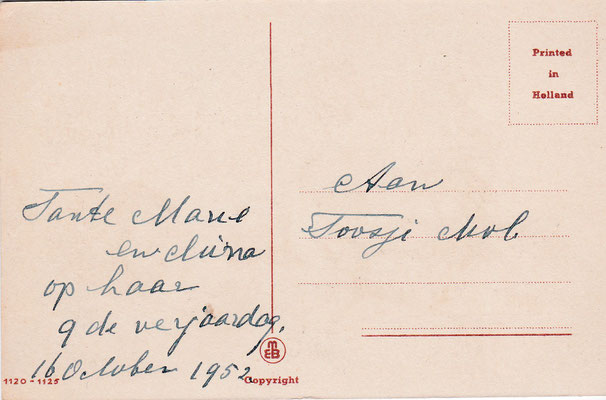 Tante Marie
en Mina
op haar
9 de verjaardag.
16 October 1952
Aan
Toosje Mol.
Printed
in
Holland
MEB
1120-1125
Copyright